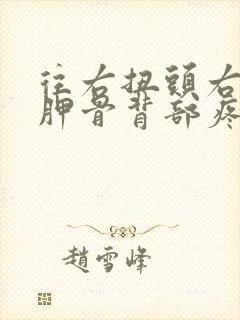 往右扭頭右
胛骨背部疼
趙雪峰